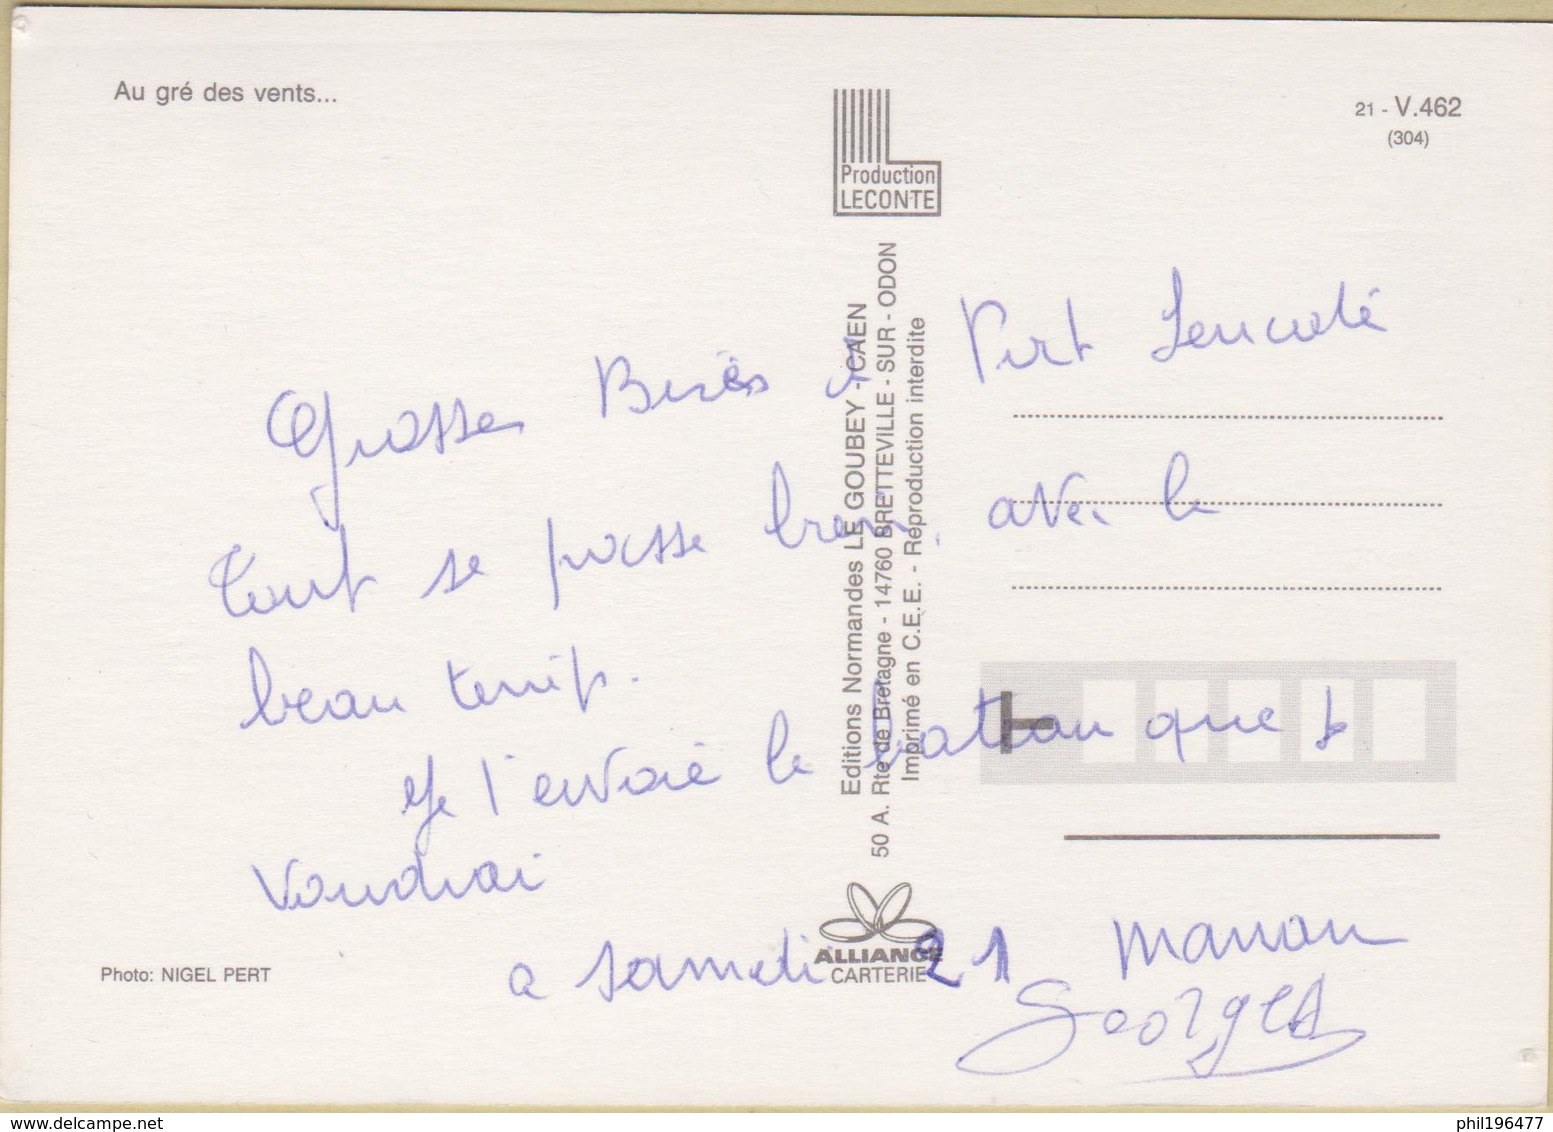 Au gré des vents...
21 - V.462
(304)
Production
LECONTE
Editions Normandes LE GOUBEY - CAEN
50 A. Rte de Bretagne - 14760 BRETTEVILLE - SUR - ODON
Imprimé en C.E.E. - Reproduction interdite
Grosses Bises à Port
Tout se passe bien, avec le
beau temps.
Je t'envoie le bateau que je
voudrai
a samedi 21 Maman
Georges
ALLIANCE
CARTERIE
Photo: NIGEL PERT
delcampe.net
phil196477